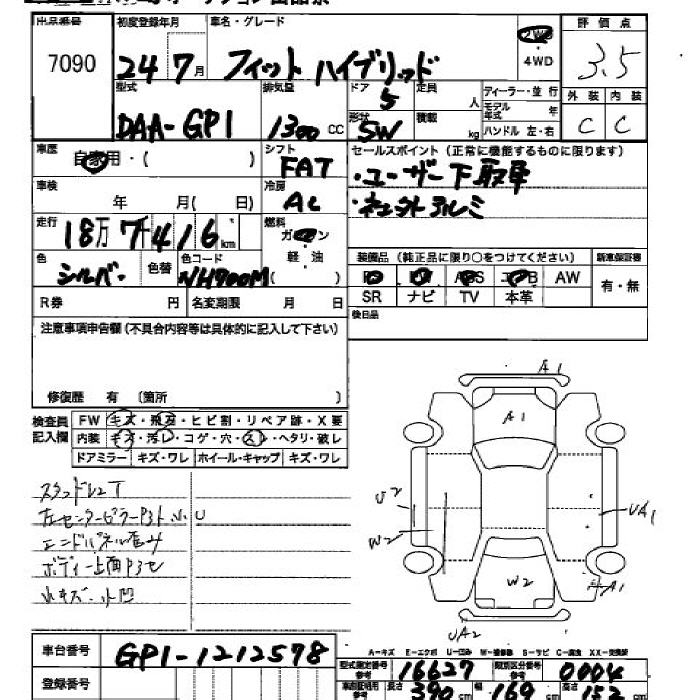 出品番号 7090
初度登録年月 24 7月
車名・グレード フィット ハイブリッド
2WD 4WD
評価点 3.5
型式 DAA-GP1
排気量 1300 CC
ドア 5
形状 SW
定員 人
積載 kg
ディーラー・並行
モデル年式 年
ハンドル 左・右
外装 内装
C C
車歴 自家用・( )
シフト FAT
車検 年 月( 日)
冷房 AC
走行 18万7千416km
燃料 ガソリン 軽・油 ( )
色 シルバー 色替
色コード NH700M
R券 円 名変期限 月 日
セールスポイント(正常に機能するものに限ります)
・ユーザー下取車
装備品(純正品に限り○をつけてください)
新車保証書
AW
有・無
SR ナビ TV 本革
後日品
注意事項申告欄(不具合内容等は具体的に記入して下さい)
修復歴 有 〔箇所 〕
検査員記入欄
FW キズ・飛石・ヒビ割・リペア跡・X要
内装 キズ・汚レ・コゲ・穴・スレ・ヘタリ・破レ
ドアミラー キズ・ワレ ホイール・キャップ キズ・ワレ
エンドパネル歪み
小キズ・小凹
A1
A1
U2
W2
UA1
W2
A1
UA2
A-キズ E-エクボ U-凹み W-補修跡 S-サビ C-腐食 XX-交換済
車台番号 GP1-1212578
登録番号
型式指定番号 参考 16627
類別区分番号 参考 0004
長さ 390 cm 幅 169 cm 高さ 152 cm